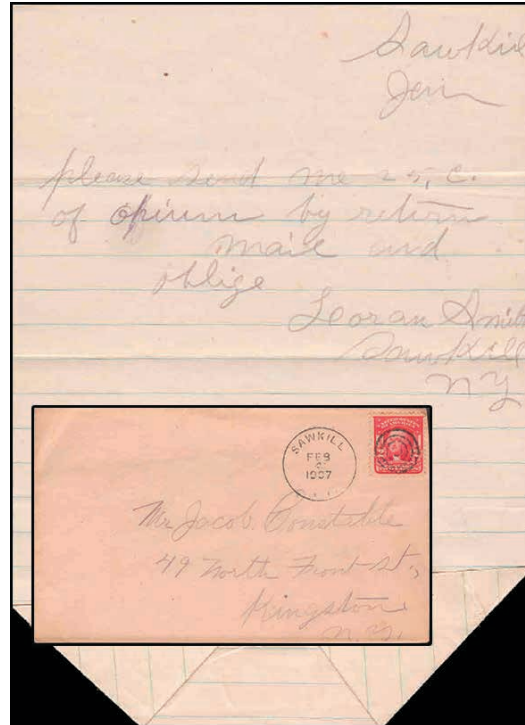 Sawkill
please send me 25, c.
of opium by return
mail and
oblige
Smith
Sawkill
NY
SAWKILL
FEB
1907
Mr Jacob
49 North Front St.,
Kingston
N.Y.